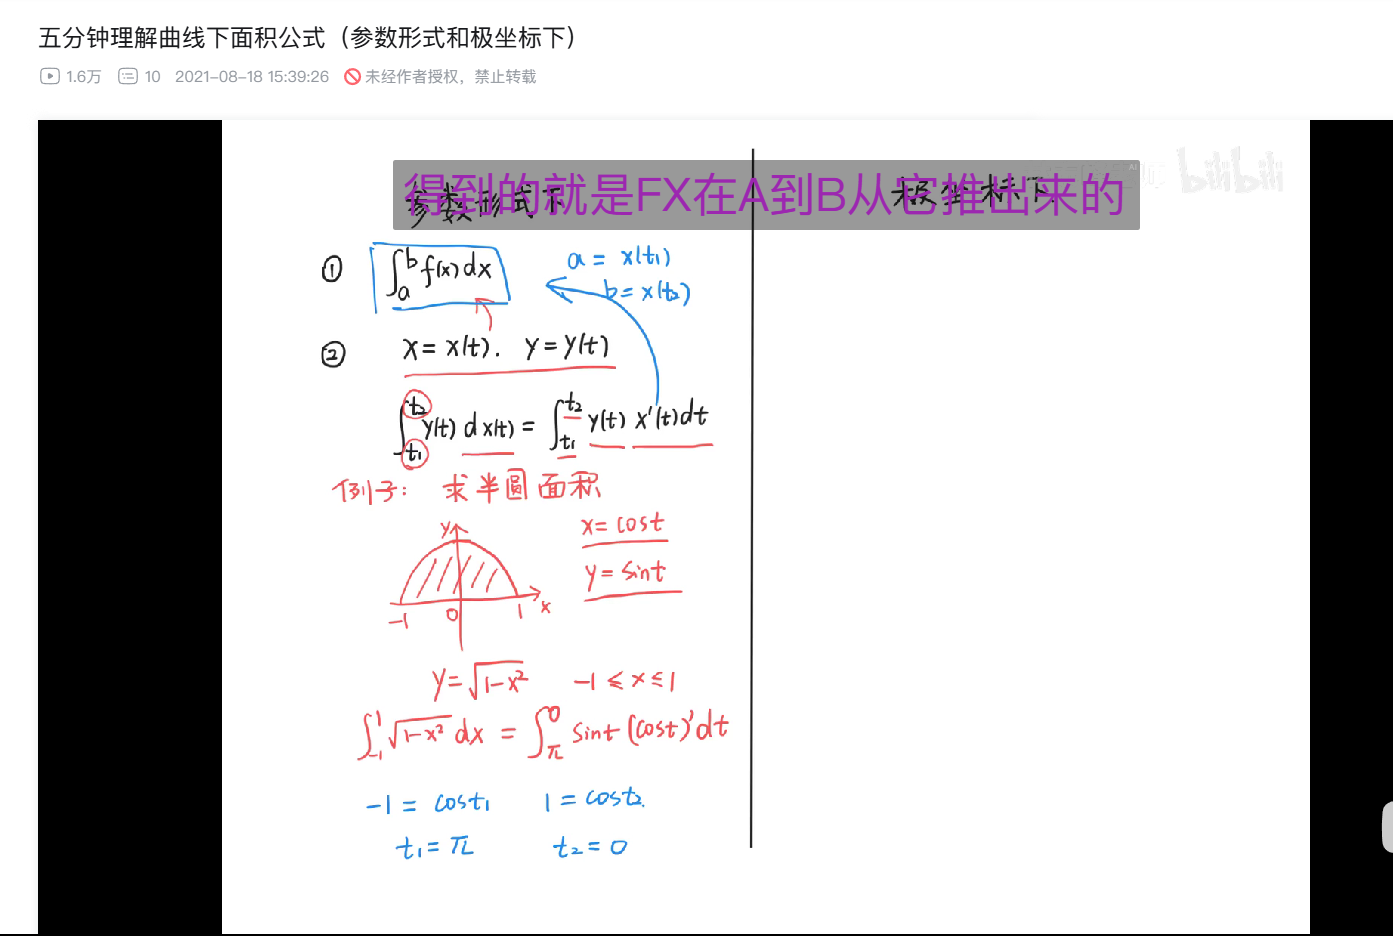 五分钟理解曲线下面积公式（参数形式和极坐标下）
1.6万 10 2021-08-18 15:39:26 未经作者授权，禁止转载
bilibili
得到的就是FX在A到B从它推出来的
参数形式下
极坐标下
① ∫_a^b f(x)dx
a = x(t₁)
b = x(t₂)
② x = x(t). y = y(t)
∫_{t₁}^{t₂} y(t) dx(t) = ∫_{t₁}^{t₂} y(t) x'(t)dt
例子: 求半圆面积
y
-1 0 1 x
x = cost
y = sint
y = √(1-x²) -1 ≤ x ≤ 1
∫_{-1}^1 √(1-x²) dx = ∫_π^0 sint (cost)'dt
-1 = cost₁ 1 = cost₂.
t₁ = π t₂ = 0